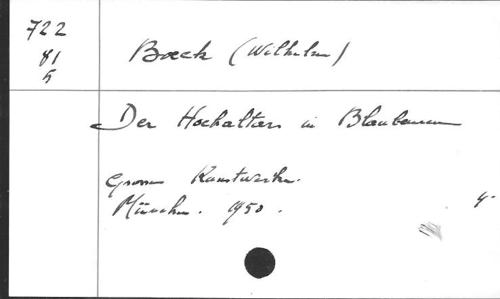 722
81
5
Boeck (Wilhelm)
Der Hochaltar in Blaubeuren
Grosse Kunstwerke.
München. 1950.
4-